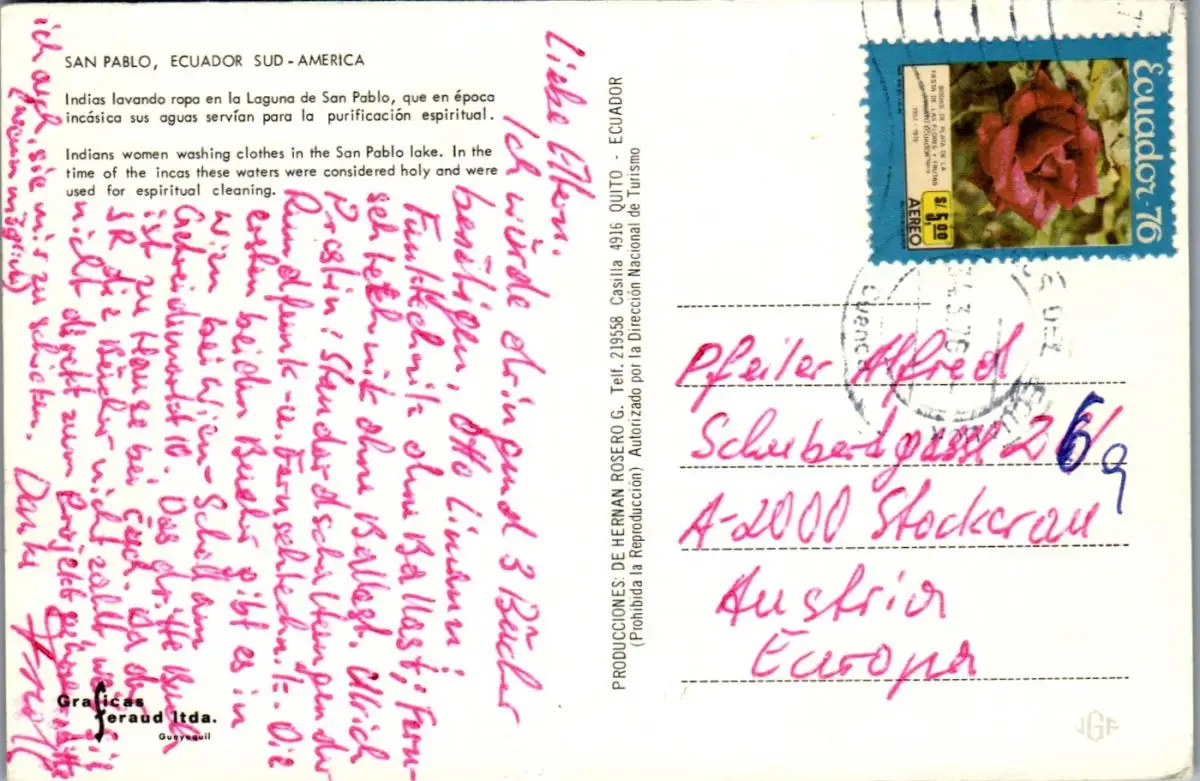 SAN PABLO, ECUADOR SUD-AMERICA
Indias lavando ropa en la Laguna de San Pablo, que en época
incásica sus aguas servían para la purificación espiritual.
Indians women washing clothes in the San Pablo lake. In the
time of the incas these waters were considered holy and were
used for espiritual cleaning.
Liebe Eltern.
Ich würde dringend 3 Bücher
benötigen. Otto Limann:
Funktechnik ohne Ballast; Fern-
sehtechnik ohne Ballast. Ulrich
Prestin: Standardschaltungen der
Rundfunk- u. Fernsehtechnik. Die
ersten beiden Bücher gibt es in
Wien bei
Getreidemarkt 10. Das dritte Buch
ist zu Hause bei Euch. Da der
die Bücher nicht zahlt, weil sie
nicht direkt zum Projekt gehören, bitte
ich euch, sie mir zu schicken. Danke
(wenn möglich)
Graficas
feraud ltda.
Guayaquil
PRODUCCIONES: DE HERNAN ROSERO G. Telf. 219558 Casilla 4916 QUITO - ECUADOR
(Prohibida la Reproducción) Autorizado por la Dirección Nacional de Turismo
Ecuador 76
BODAS DE PLATA DE LA
FIESTA DE LAS FLORES Y FRUTAS
S/. 5,00
AEREO
Cuenca
Pfeiler Alfred
Schubertgasse 26/9
A-2000 Stockerau
Austria
Europa